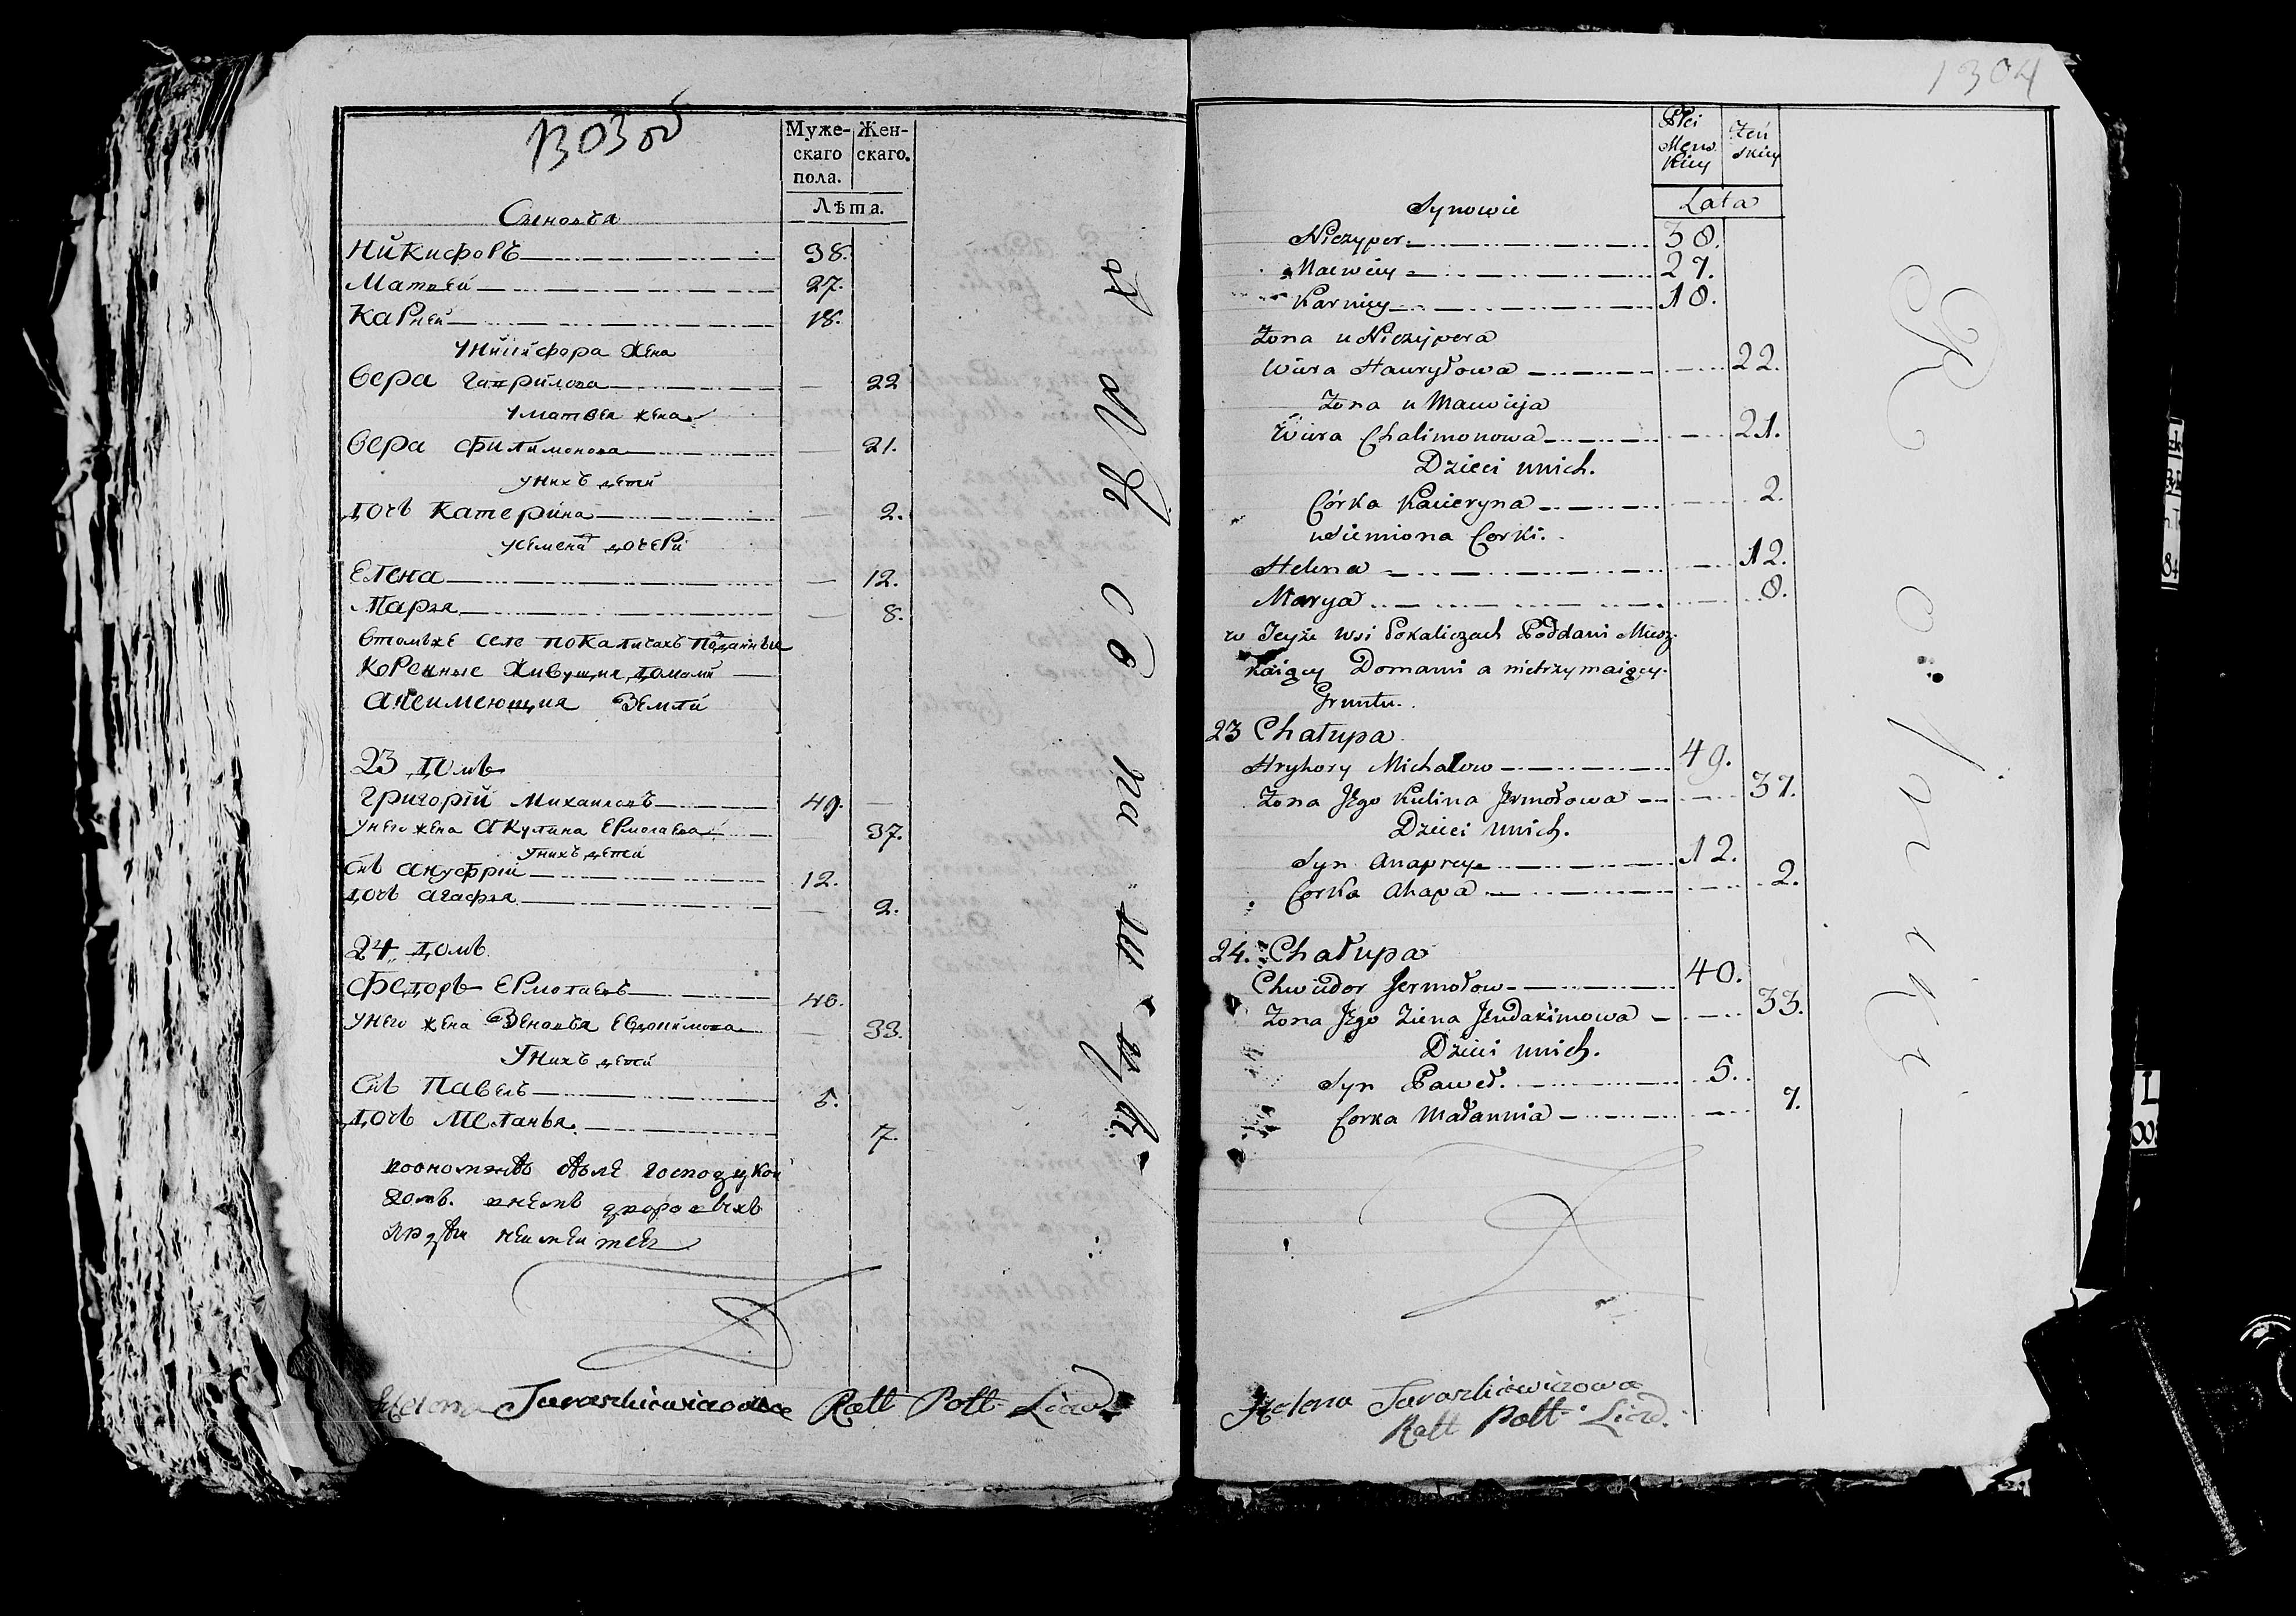 1303 об
Муже-
скаго
пола.
Жен-
скаго.
Лѣта.
Сыновья
Никифоръ 38.
Матвей 27.
Карней 18.
У Никифора жена
Вера Гаврилова 22
У Матвея жена
Вера Филимонова 21.
У нихъ дети
дочь Катерина 2.
У Семена дочери
Елена 12.
Марья 8.
Втомъже селе Покаличахъ Подданные
Коренные живущия домами
а неимеющия Земли
23 домъ
Григорій Михайловъ 49.
У него жена Акулина Ермолаева 37.
У нихъ дети
Снъ Ануфрій 12.
дочь Агафья 2.
24 домъ
Федоръ Ермолаевъ 40.
У него жена Зеновья Евдокимова 33.
У нихъ дети
Снъ Павелъ 5.
дочь Меланья 7.
Helena Taraszkiewiczowa Rott Pott Licw.
1304
Płci
Męzs
kiey
Żeń
skiey
Lata
Synowie
Niczyper 38.
Maewiey 27.
Karniey 18.
Żona u Niczypera
Wiera Hauryłowa 22.
Żona u Maewieja
Wiera Chalimonowa 21.
Dzieci unich.
Córka Kacieryna 2.
u Siemiona Corki.
Helena 12.
Marya 8.
w Teyże Wsi Pokaliczach Poddani Miesz
kaiący Domami a nietrzymaiący
Gruntu.
23 Chałupa
Hryhory Michałow 49.
Żona Jego Kulina Jermołowa 37.
Dzieci unich.
Syn Anaprey 12.
Corka Ahapa 2.
24. Chałupa
Chwiedor Jermołow 40.
Żona Jego Ziena Jeudakimowa 33.
Dzieci unich.
Syn Paweł 5.
Corka Małannia 7.
Helena Taraszkiewiczowa
Rott Pott Licw.